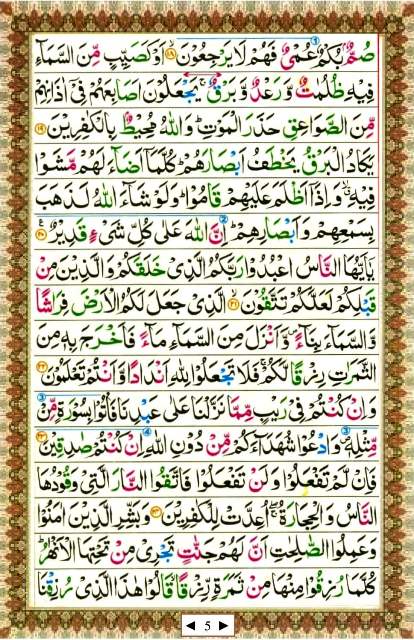 صُمٌّۢ بُكْمٌ عُمْیٌ فَهُمْ لَا یَرْجِعُوْنَ ۙ﴿۱۸﴾ اَوْ كَصَیِّبٍ مِّنَ السَّمَآءِ
فِیْهِ ظُلُمٰتٌ وَّ رَعْدٌ وَّ بَرْقٌ ۚ یَجْعَلُوْنَ اَصَابِعَهُمْ فِیْۤ اٰذَانِهِمْ
مِّنَ الصَّوَاعِقِ حَذَرَ الْمَوْتِ ؕ وَاللّٰهُ مُحِیْطٌۢ بِالْكٰفِرِیْنَ ﴿۱۹﴾
یَكَادُ الْبَرْقُ یَخْطَفُ اَبْصَارَهُمْ ؕ كُلَّمَاۤ اَضَآءَ لَهُمْ مَّشَوْا
فِیْهِ ۙۗ وَ اِذَاۤ اَظْلَمَ عَلَیْهِمْ قَامُوْا ؕ وَ لَوْ شَآءَ اللّٰهُ لَذَهَبَ
بِسَمْعِهِمْ وَ اَبْصَارِهِمْ ؕ اِنَّ اللّٰهَ عَلٰی كُلِّ شَیْءٍ قَدِیْرٌ ﴿۲۰﴾
یٰۤاَیُّهَا النَّاسُ اعْبُدُوْا رَبَّكُمُ الَّذِیْ خَلَقَكُمْ وَ الَّذِیْنَ مِنْ
قَبْلِكُمْ لَعَلَّكُمْ تَتَّقُوْنَ ۙ﴿۲۱﴾ الَّذِیْ جَعَلَ لَكُمُ الْاَرْضَ فِرَاشًا
وَّ السَّمَآءَ بِنَآءً ۪ وَّ اَنْزَلَ مِنَ السَّمَآءِ مَآءً فَاَخْرَجَ بِهٖ مِنَ
الثَّمَرٰتِ رِزْقًا لَّكُمْ ۚ فَلَا تَجْعَلُوْا لِلّٰهِ اَنْدَادًا وَّ اَنْتُمْ تَعْلَمُوْنَ ﴿۲۲﴾
وَ اِنْ كُنْتُمْ فِیْ رَیْبٍ مِّمَّا نَزَّلْنَا عَلٰی عَبْدِنَا فَاْتُوْا بِسُوْرَةٍ مِّنْ
مِّثْلِهٖ ۪ وَ ادْعُوْا شُهَدَآءَكُمْ مِّنْ دُوْنِ اللّٰهِ اِنْ كُنْتُمْ صٰدِقِیْنَ ﴿۲۳﴾
فَاِنْ لَّمْ تَفْعَلُوْا وَ لَنْ تَفْعَلُوْا فَاتَّقُوا النَّارَ الَّتِیْ وَ قُوْدُهَا
النَّاسُ وَ الْحِجَارَةُ ۚۖ اُعِدَّتْ لِلْكٰفِرِیْنَ ﴿۲۴﴾ وَ بَشِّرِ الَّذِیْنَ اٰمَنُوْا
وَ عَمِلُوا الصّٰلِحٰتِ اَنَّ لَهُمْ جَنّٰتٍ تَجْرِیْ مِنْ تَحْتِهَا الْاَنْهٰرُ ؕ
كُلَّمَا رُزِقُوْا مِنْهَا مِنْ ثَمَرَةٍ رِّزْقًا ۙ قَالُوْا هٰذَا الَّذِیْ رُزِقْنَا
5